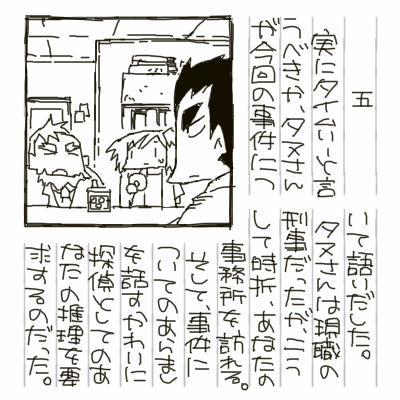 五
実にタイムリーと言
うべきか、タヌさん
が今回の事件につ
いて語りだした。
タヌさんは現職の
刑事だったが、こう
して時折、あなたの
事務所を訪れる。
そして、事件に
ついてのあらまし
を話すかわりに
探偵としてのあ
なたの推理を要
求するのだった。